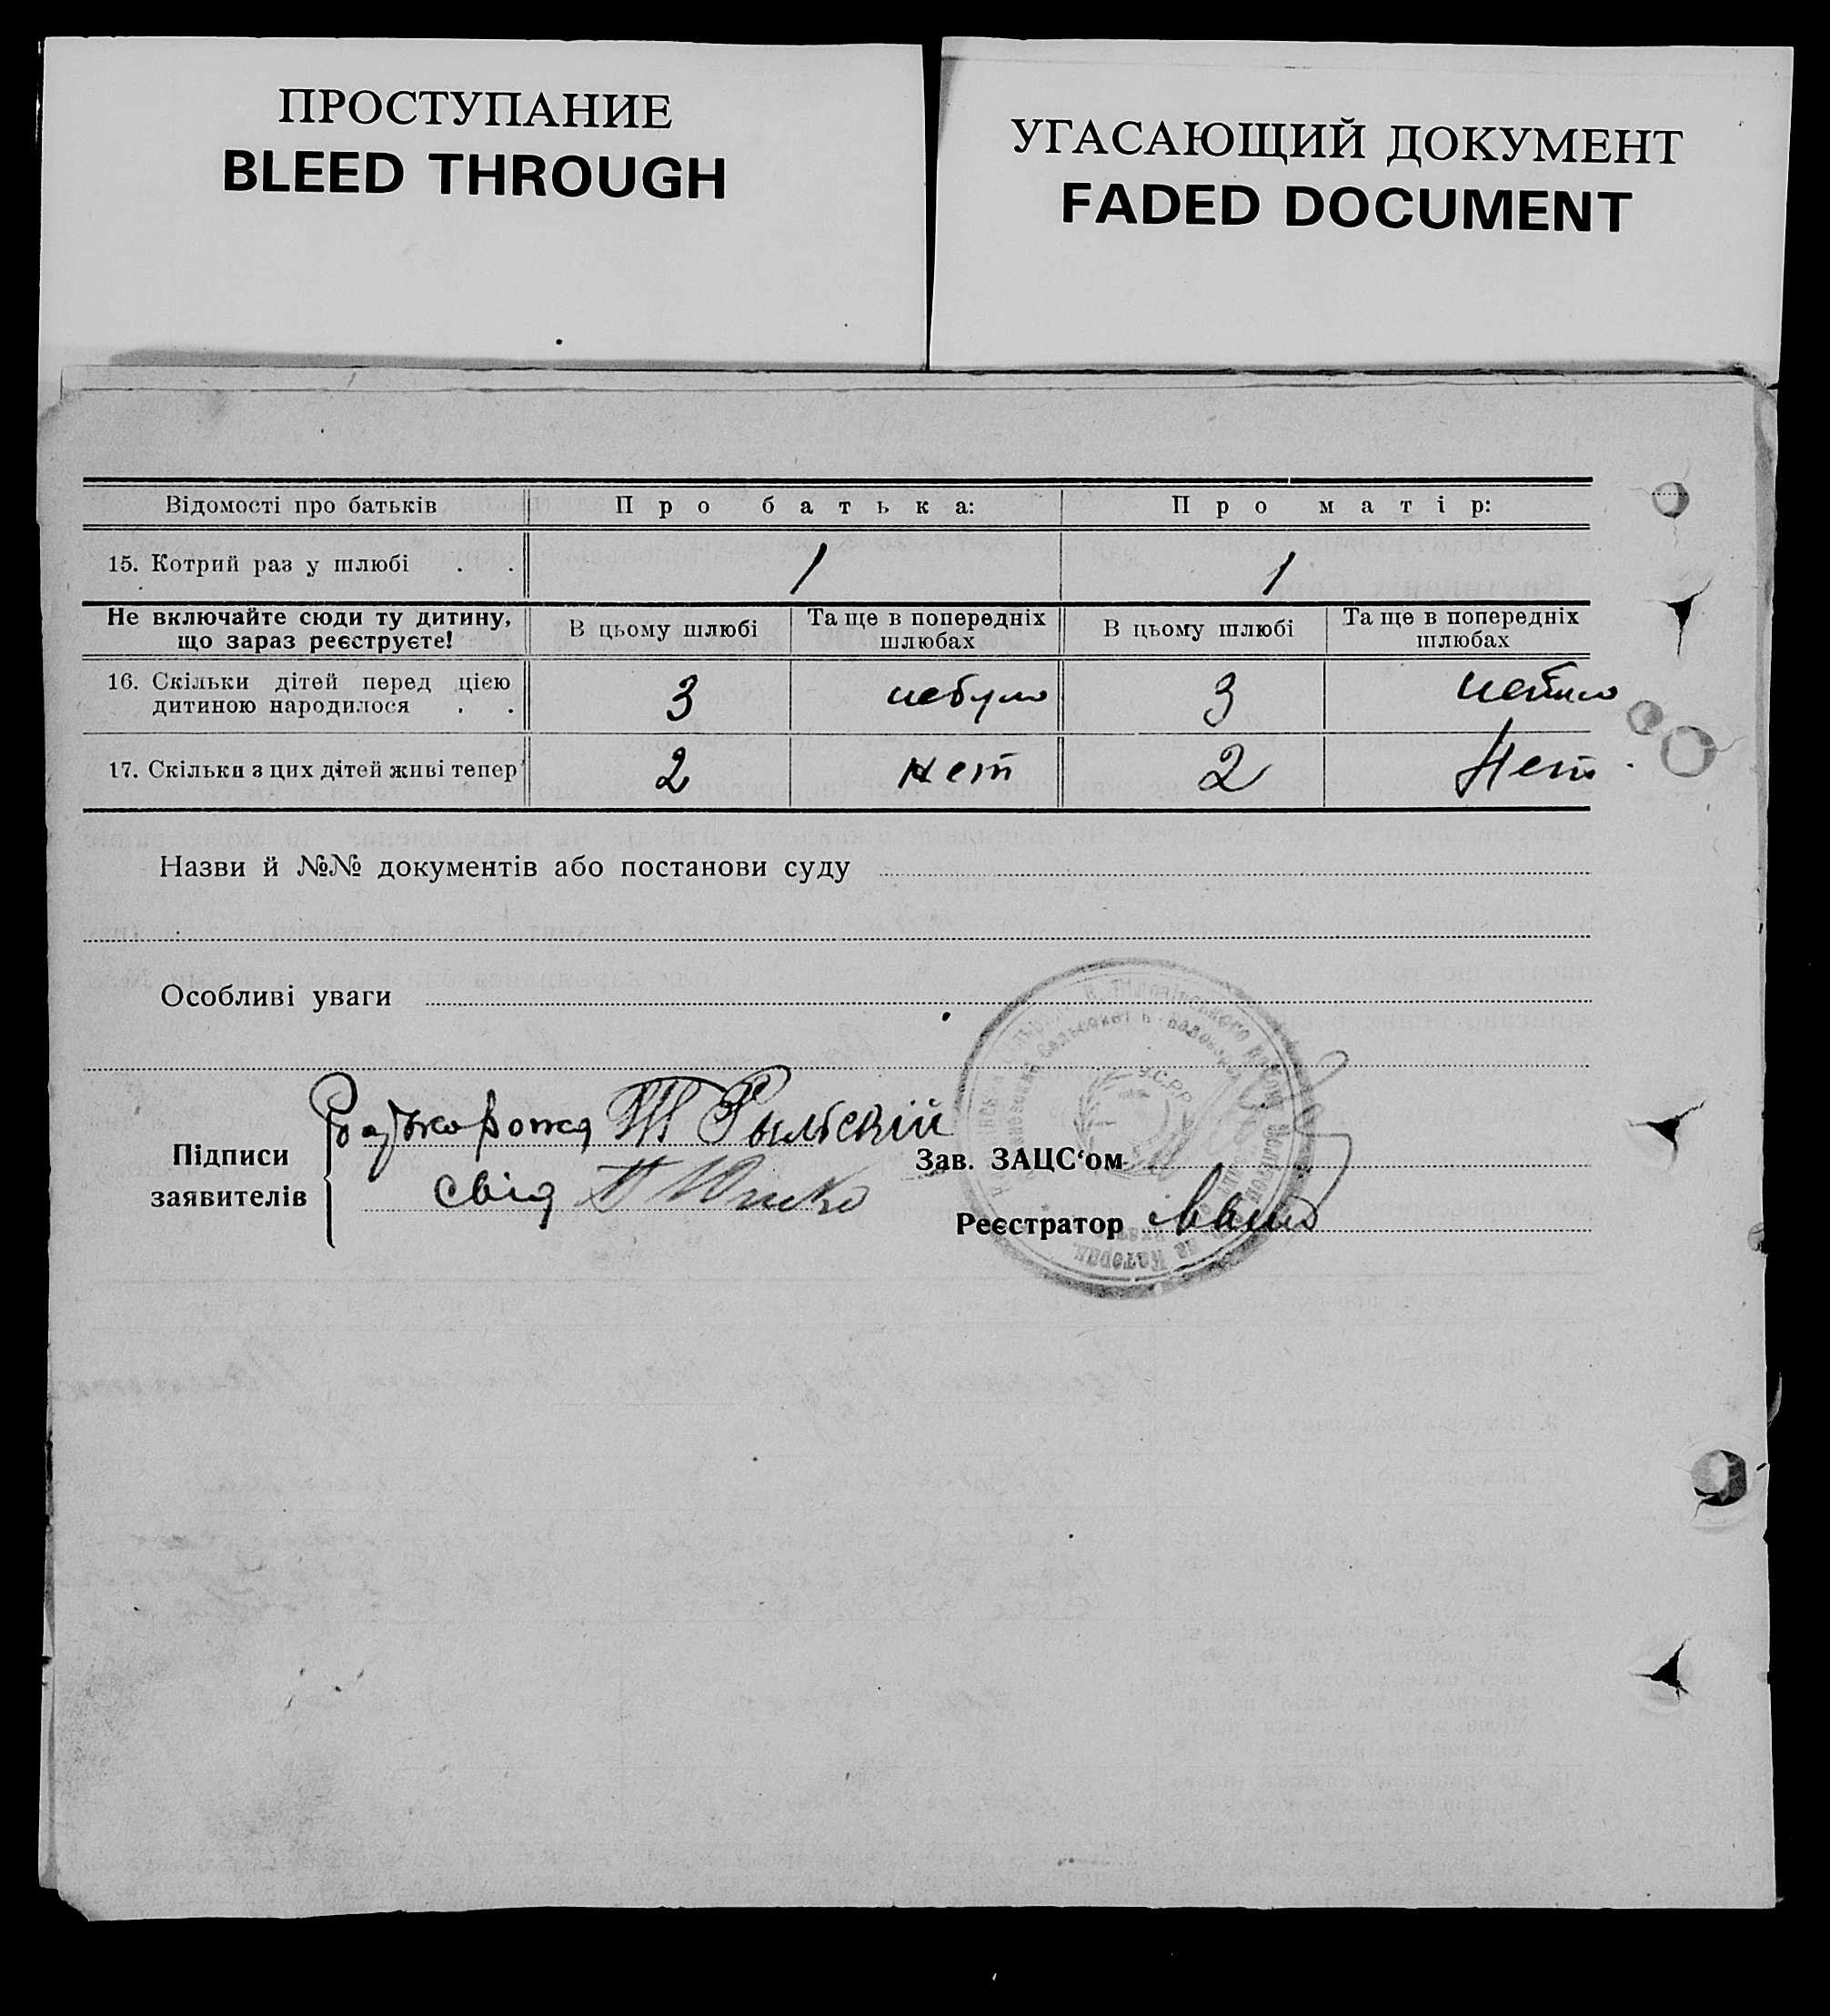 ПРОСТУПАНИЕ
BLEED THROUGH
УГАСАЮЩИЙ ДОКУМЕНТ
FADED DOCUMENT
Відомості про батьків Про батька: Про матір:
15. Котрий раз у шлюбі . . 1 1
Не включайте сюди ту дитину, що зараз реєструєте! В цьому шлюбі Та ще в попередніх шлюбах В цьому шлюбі Та ще в попередніх шлюбах
16. Скільки дітей перед цією
дитиною народилося . . 3 небуло 3 небуло
17. Скільки з цих дітей живі тепер 2 нет 2 Нет.
Назви й №№ документів або постанови суду
Особливі уваги
Підписи
заявителів
Рыльскій
свід
Зав. ЗАЦС‘ом
Реєстратор
У.С.Р.Р.